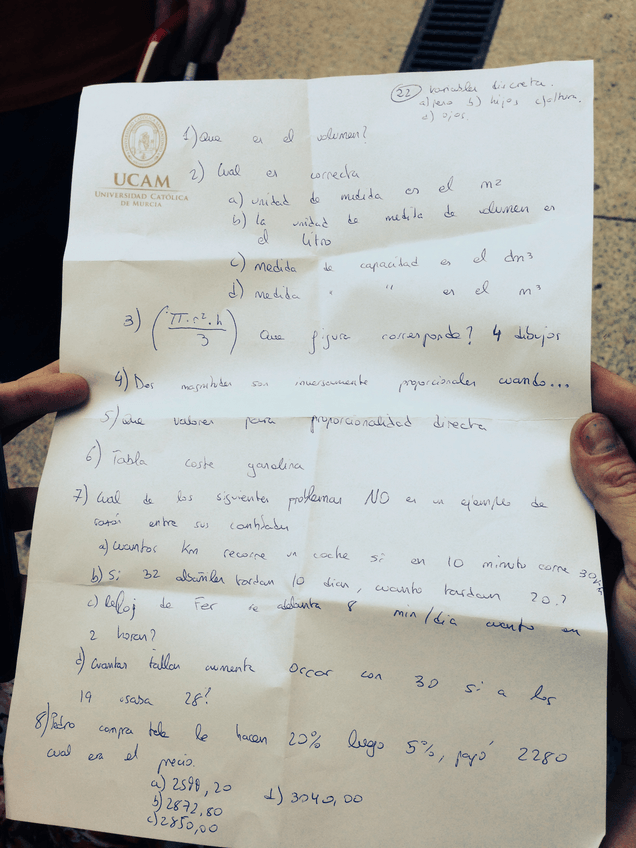 22 variable discreta.
a) peso b) hijos c) altura
d) ojos.
UCAM
UNIVERSIDAD CATÓLICA
DE MURCIA
1) Que es el volumen?
2) Cual es correcta
a) unidad de medida es el m²
b) la unidad de medida de volumen es
el litro
c) medida de capacidad es el dm³
d) medida " " es el m³
3) (π·r²·h / 3) Que figura corresponde? 4 dibujos
4) Dos magnitudes son inversamente proporcionales cuando...
5) Que valores para proporcionalidad directa
6) Tabla coste gasolina
7) Cual de los siguientes problemas NO es un ejemplo de
razón entre sus cantidades
a) Cuantos Km recorre un coche si en 10 minuto corre 30
b) Si 32 albañiles tardan 10 dias, cuanto tardan 20?
c) Reloj de Fer se adelanta 8 min/dia cuanto en
2 horas?
d) Cuantas tallas aumenta Oscar con 30 si a los
19 usaba 28?
8) Pedro compra tele le hacen 20% luego 5%, pagó 2280
cual era el precio.
a) 2598,20 d) 3040,00
b) 2872,80
c) 2850,00